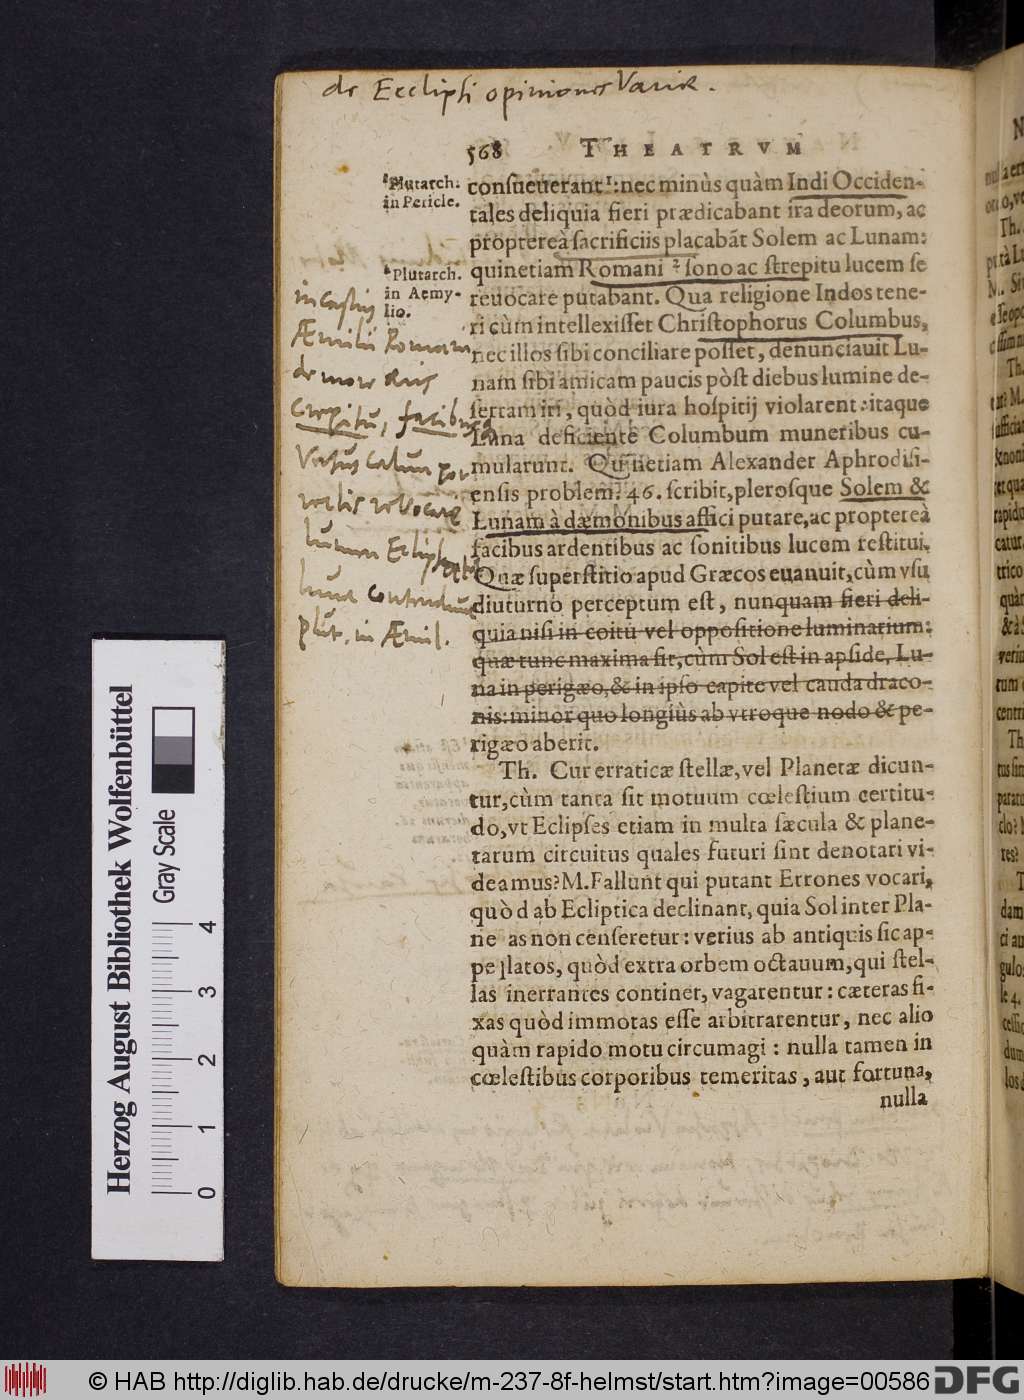 de Ecclipsi opiniones Variæ.
568 THEATRVM
¹Plutarch.
in Pericle.
²Plutarch.
in Aemy-
lio.
in castris
Æmilii Romani
de more æris
crepitu, facibusq
Versus Cælum por
rectis revocare
lumen Eclipsatæ
lunæ
plut. in Æmil.
consueuerant¹: nec minùs quàm Indi Occiden-
tales deliquia fieri prædicabant ira deorum, ac
proptereà sacrificiis placabãt Solem ac Lunam:
quinetiam Romani ² sono ac strepitu lucem se
reuocare putabant. Qua religione Indos tene-
ri cùm intellexisset Christophorus Columbus,
nec illos sibi conciliare posset, denunciauit Lu-
nam sibi amicam paucis pòst diebus lumine de-
sertam iri, quòd iura hospitij violarent: itaque
Luna deficiente Columbum muneribus cu-
mularunt. Quinetiam Alexander Aphrodisi-
ensis problem. 46. scribit, plerosque Solem &
Lunam à dæmonibus affici putare, ac proptereà
facibus ardentibus ac sonitibus lucem restitui.
Quæ superstitio apud Græcos euanuit, cùm vsu
diuturno perceptum est, nunquam fieri deli-
quia nisi in coitu vel oppositione luminarium:
quæ tunc maxima fit, cùm Sol est in apside, Lu-
na in perigæo, & in ipso capite vel cauda draco-
nis: minor quo longiùs ab vtroque nodo & pe-
rigæo aberit.
Th. Cur erraticæ stellæ, vel Planetæ dicun-
tur, cùm tanta sit motuum cœlestium certitu-
do, vt Eclipses etiam in multa sæcula & plane-
tarum circuitus quales futuri sint denotari vi-
deamus? M. Fallunt qui putant Errones vocari,
quòd ab Ecliptica declinant, quia Sol inter Pla-
ne as non censeretur: verius ab antiquis sic ap-
pellatos, quòd extra orbem octauum, qui stel-
las inerrantes continet, vagarentur: cæteras fi-
xas quòd immotas esse arbitrarentur, nec alio
quàm rapido motu circumagi: nulla tamen in
cœlestibus corporibus temeritas, aut fortuna,
nulla
Herzog August Bibliothek Wolfenbüttel
Gray Scale
0 1 2 3 4
© HAB http://diglib.hab.de/drucke/m-237-8f-helmst/start.htm?image=00586
DFG